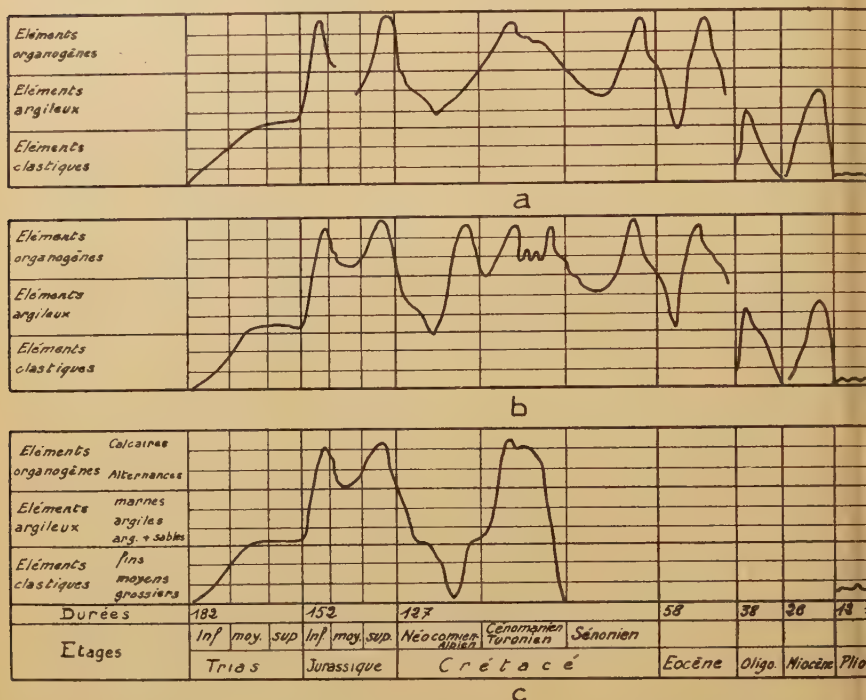 Eléments
organogènes
Eléments
argileux
Eléments
clastiques
a
Eléments
organogènes
Eléments
argileux
Eléments
clastiques
b
Eléments Calcaires
organogènes Alternances
Eléments marnes
argileux argiles
arg. + sables
Eléments fins
clastiques moyens
grossiers
Durées 182 152 127 58 38 26 12
Etages Inf moy. sup Inf moy. sup. Néocomien Alpien Cénomanien Turonien Sénonien
Trias Jurassique Crétacé Eocène Oligo. Miocène Plio
c